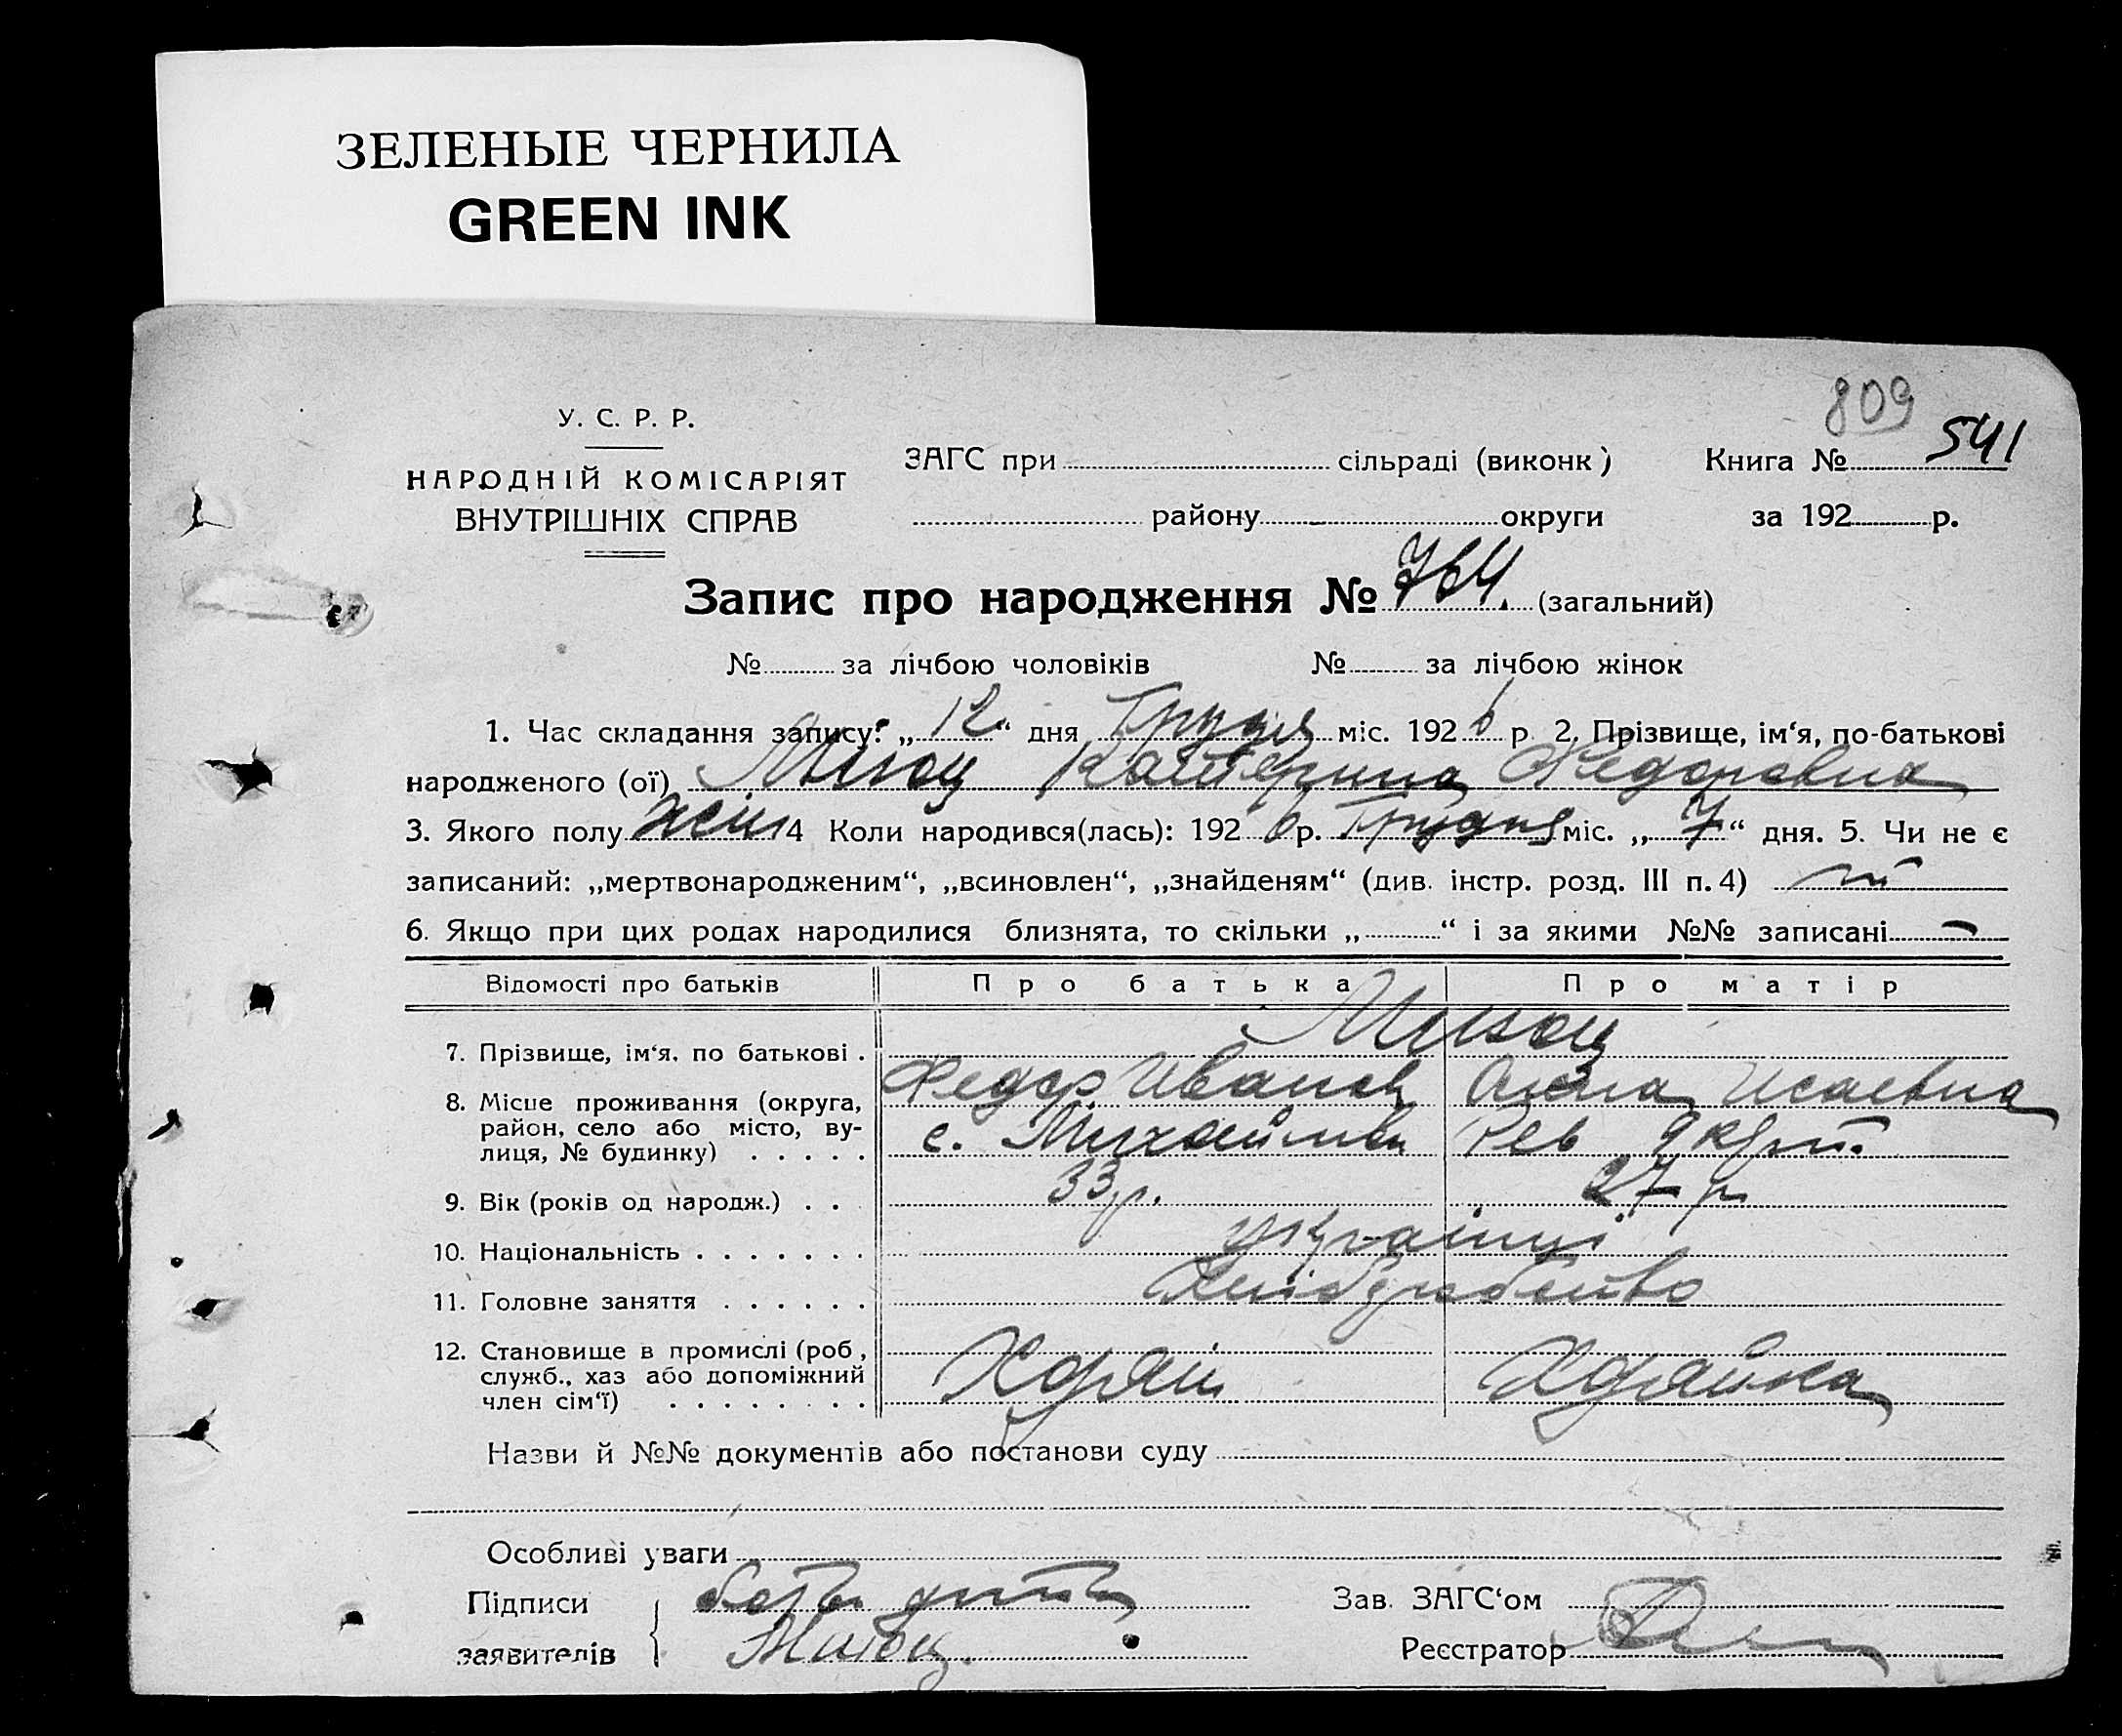 ЗЕЛЕНЫЕ ЧЕРНИЛА
GREEN INK
809
У. С. Р. Р.
НАРОДНІЙ КОМІСАРІЯТ
ВНУТРІШНІХ СПРАВ
ЗАГС при сільраді (виконк) Книга № 541
району округи за 192 р.
Запис про народження № 764. (загальний)
№ за лічбою чоловіків № за лічбою жінок
1. Час складання запису: „12“ дня Грудня міс. 1926 р 2. Прізвище, ім‘я, по-батькові
народженого (ої) Катерина Федоровна
3. Якого полу жін 4 Коли народився(лась): 1926 р. Грудня міс. „7“ дня. 5. Чи не є
записаний: „мертвонародженим“, „всиновлен“, „знайденям“ (див. інстр. розд. III п. 4)
6. Якщо при цих родах народилися близнята, то скільки „ “ і за якими №№ записані —
Відомості про батьків Про батька Про матір
7. Прізвище, ім‘я, по батькові .
Федор Иванов Анна Исаевна
8. Місце проживання (округа,
район, село або місто, ву-
лиця, № будинку) . . . . .
с. Михайлівка
9. Вік (років од народж.) . . 33 р. 27 р
10. Національність . . . . . . . українці
11. Головне заняття . . . . . . Хліборобство
12. Становище в промислі (роб,
служб., хаз або допоміжний
член сім‘ї) . . . . . . . .
Хозяїн Хозяйка
Назви й №№ документів або постанови суду
Особливі уваги
Підписи
заявителів
Зав. ЗАГС‘ом
Реєстратор